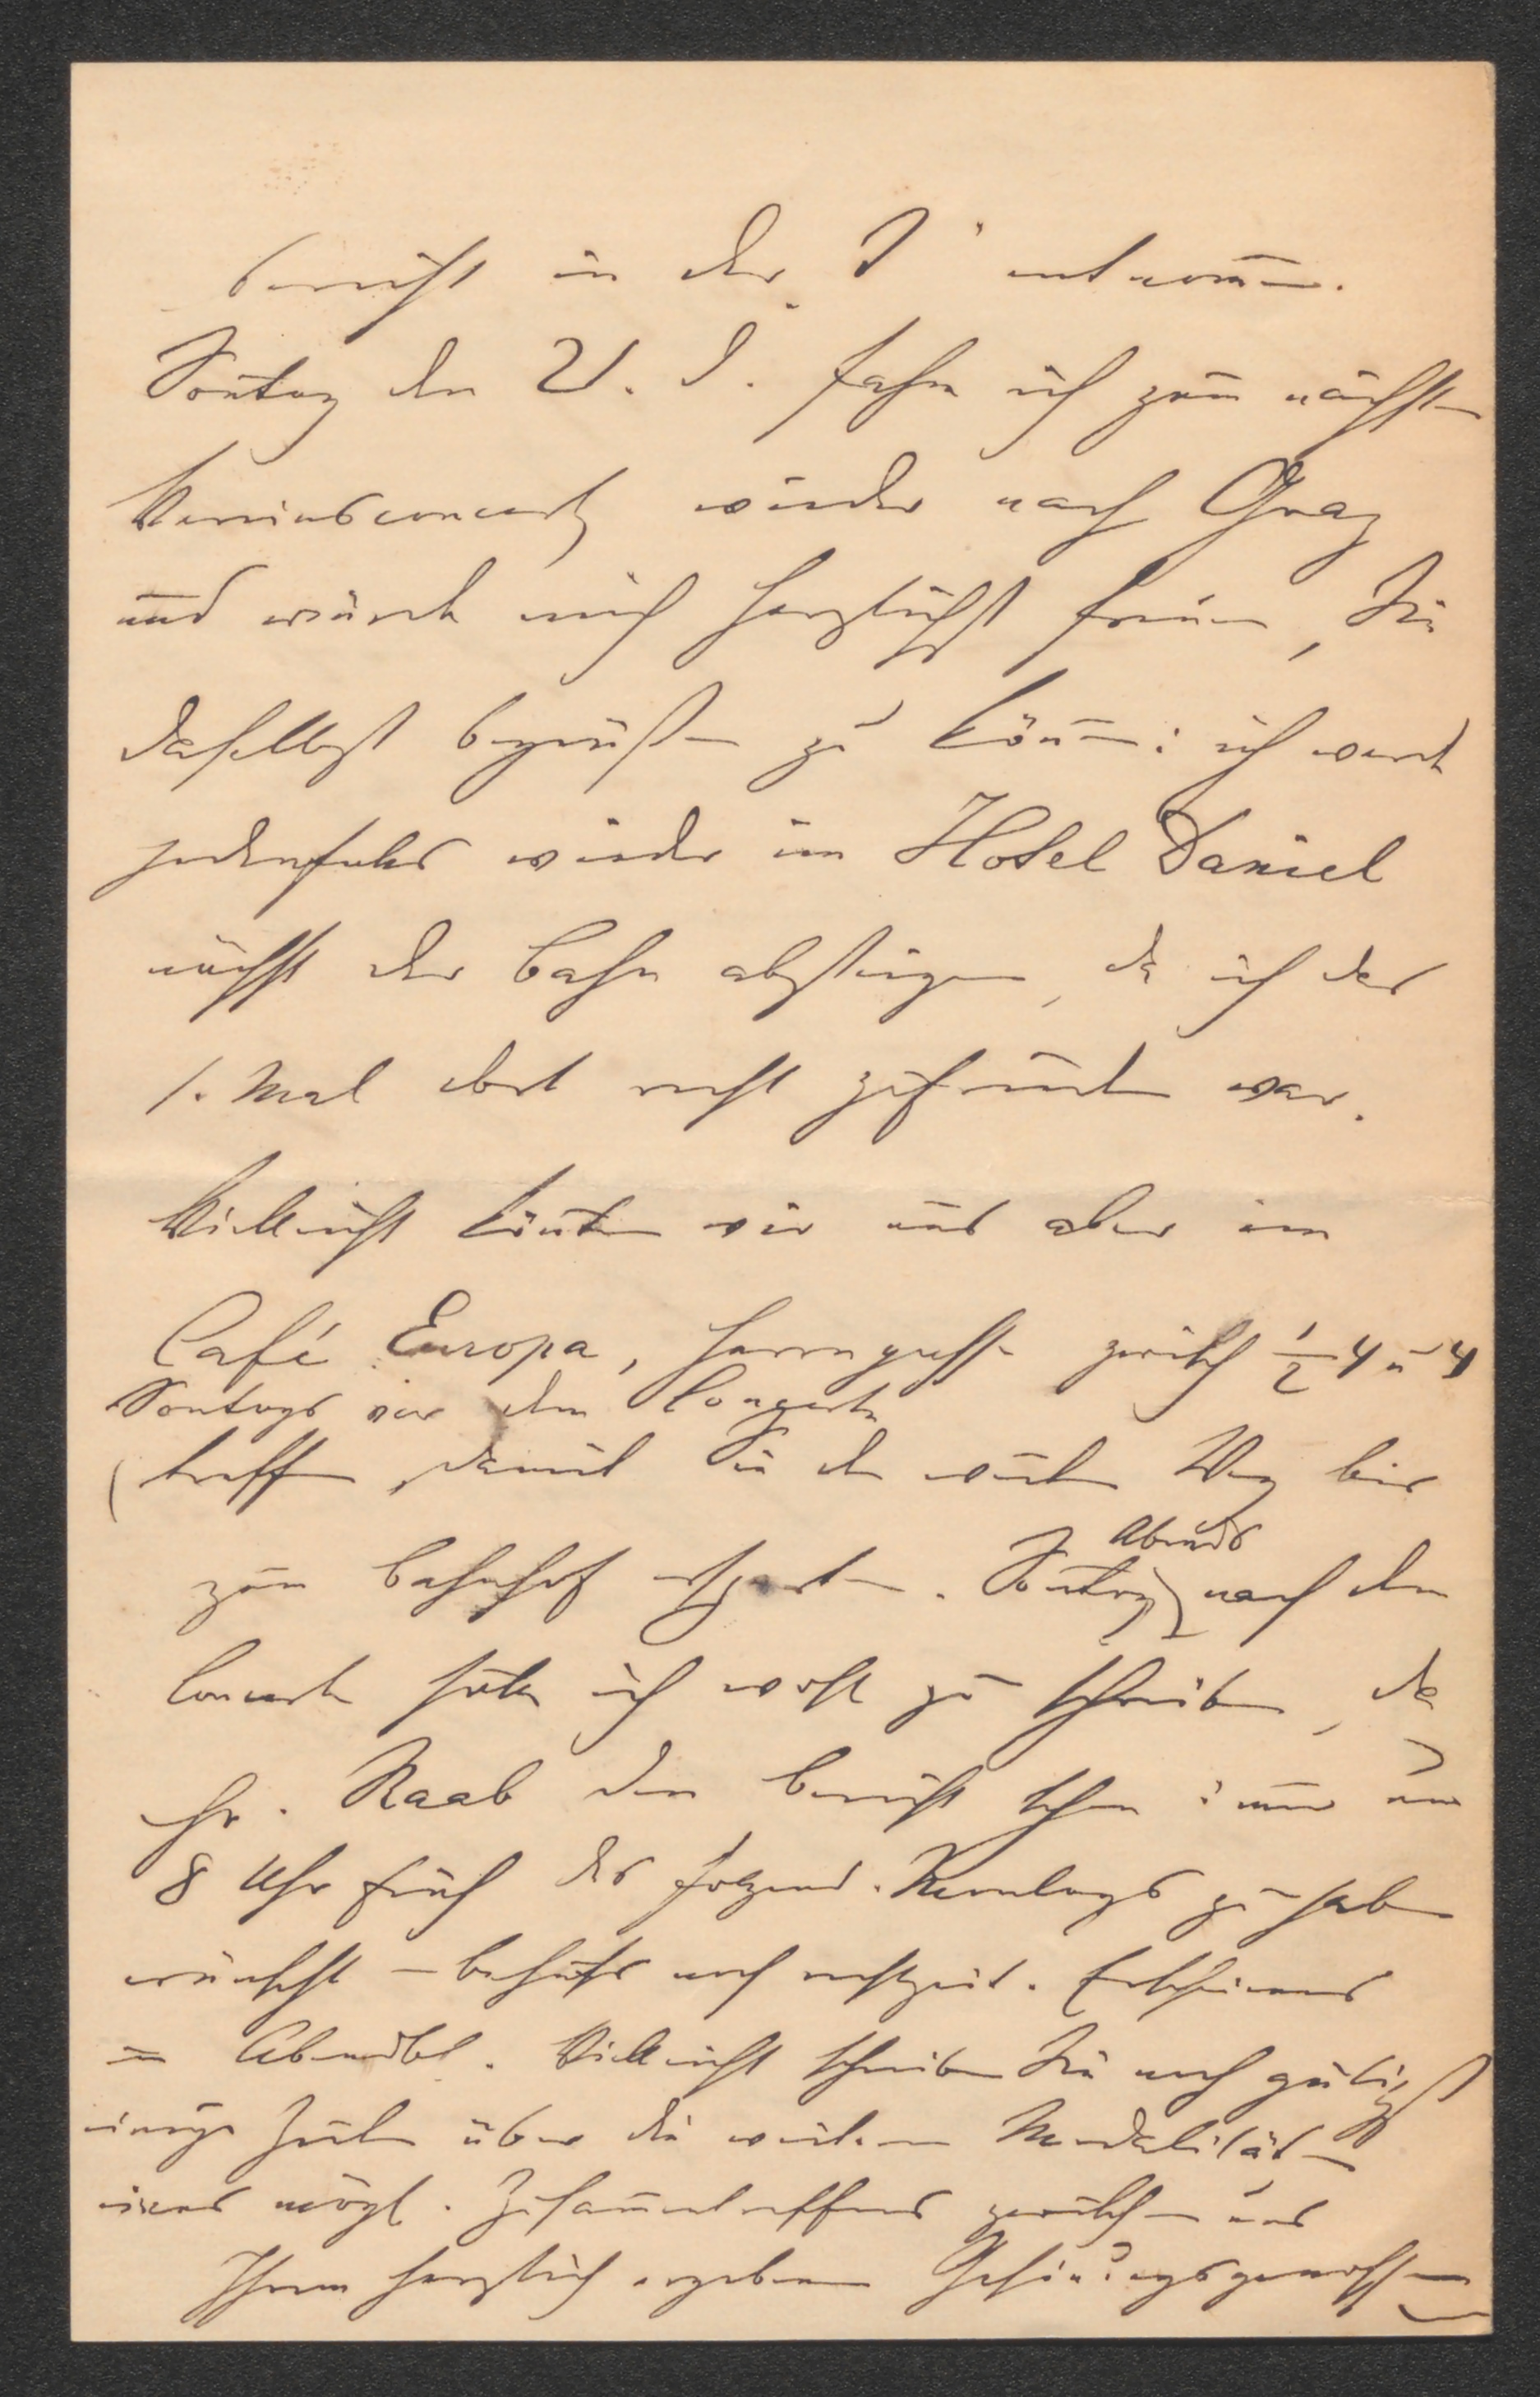 bericht in der T entnom̅en.
Son̅tag den 21. d. fahre ich zum nächsten
Vereinsconcert wieder nach Graz
und würde mich herzlichst freuen, Sie
daselbst begrüßen zu kön̅en: ich werde
jedenfalls wieder im Hotel Daniel
nächst der Bahn absteigen, da ich das
1. Mal dort recht zufrieden war.
Vielleicht kön̅ten wir uns aber im
Café Europa, Herrengasse zwisch ½ 4 u 4
Sontags vor dem Conzerte
(treffen, damit Sie den weiten Weg bis
zum Bahnhof ersparten. Son̅tag Abends nach dem
Concerte hätte ich wohl zu schreiben, da
Hr. Raab den Bericht schon im̅er um
8 Uhr früh des folgend. Montags zu haben
wünscht – behufs noch rechtzeit. Erscheinens
im Abendbl. Vielleicht schreiben Sie noch gütigst
einige Zeilen über die weiteren Modalitäten
eines mögl. Zusam̅entreffens zwischen uns
Ihrem herzlich ergebenen Gesin̅ungsgenossen